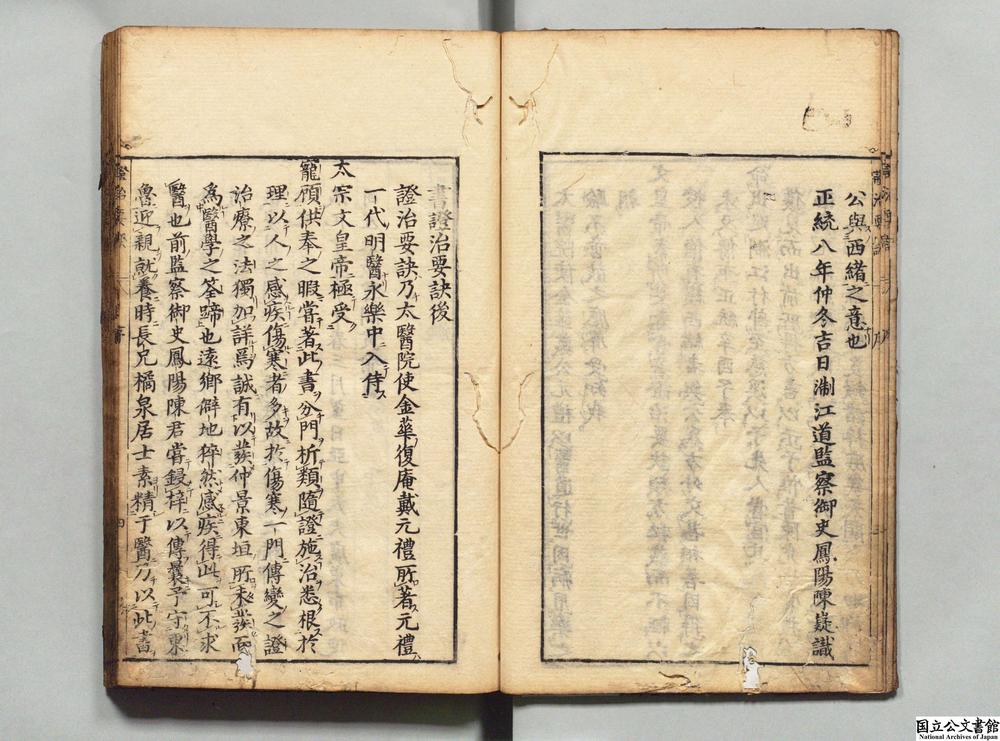 公與西緒之意也
正統八年仲冬吉日淛江道監察御史鳳陽陳嶷識
書證治要訣後
證治要訣乃太醫院使金華復庵戴元禮所著元禮
一代明醫永樂中入侍
太宗文皇帝極受
寵顧供奉之暇當著此書分門析類隨證施治悉根於
理以人之感疾傷寒者多故於傷寒一門傳變之證
治療之法獨加詳焉誠有以發仲景東垣所未發而
為醫學之筌蹄也遠鄉僻地猝然感疾得此可不求
醫也前監察御史鳳陽陳君嘗鋟梓以傳曩予守東
魯迎親就養時長兄橘泉居士素精于醫乃以此書
国立公文書館
National Archives of Japan